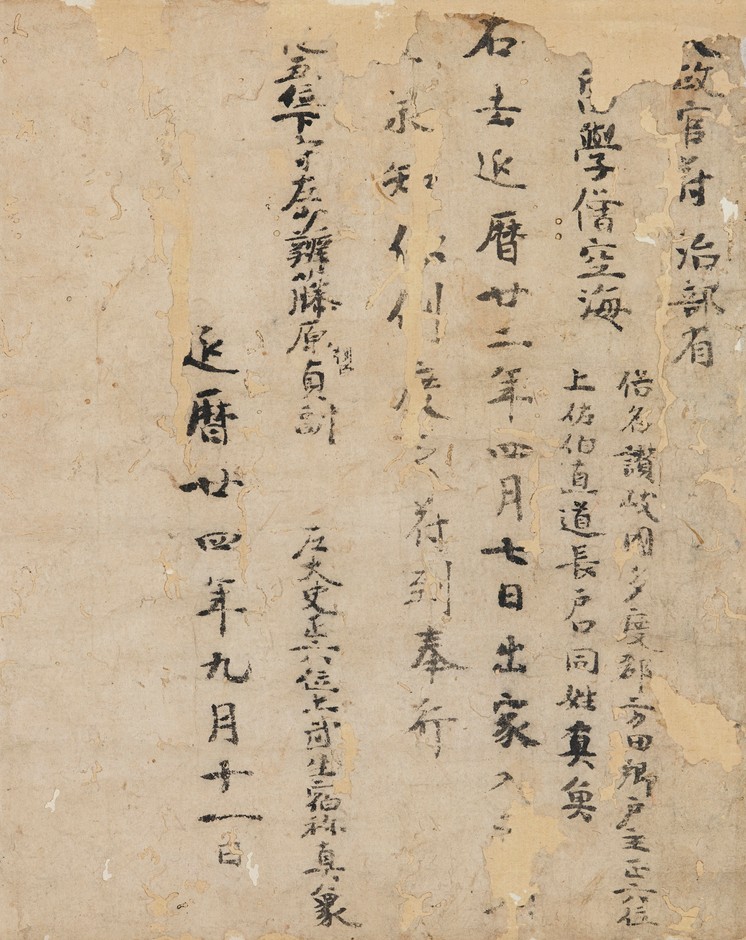 政官符 治部省
學僧空海
俗名讃岐國多度郡方田郷戸主正六位
上佐伯直道長戸口同姓真魚
右去延暦廿二年四月七日出家
承知依例度之符到奉行
五位下守左少辨藤原貞嗣
左大史正六位上武生宿祢真象
延暦廿四年九月十一日